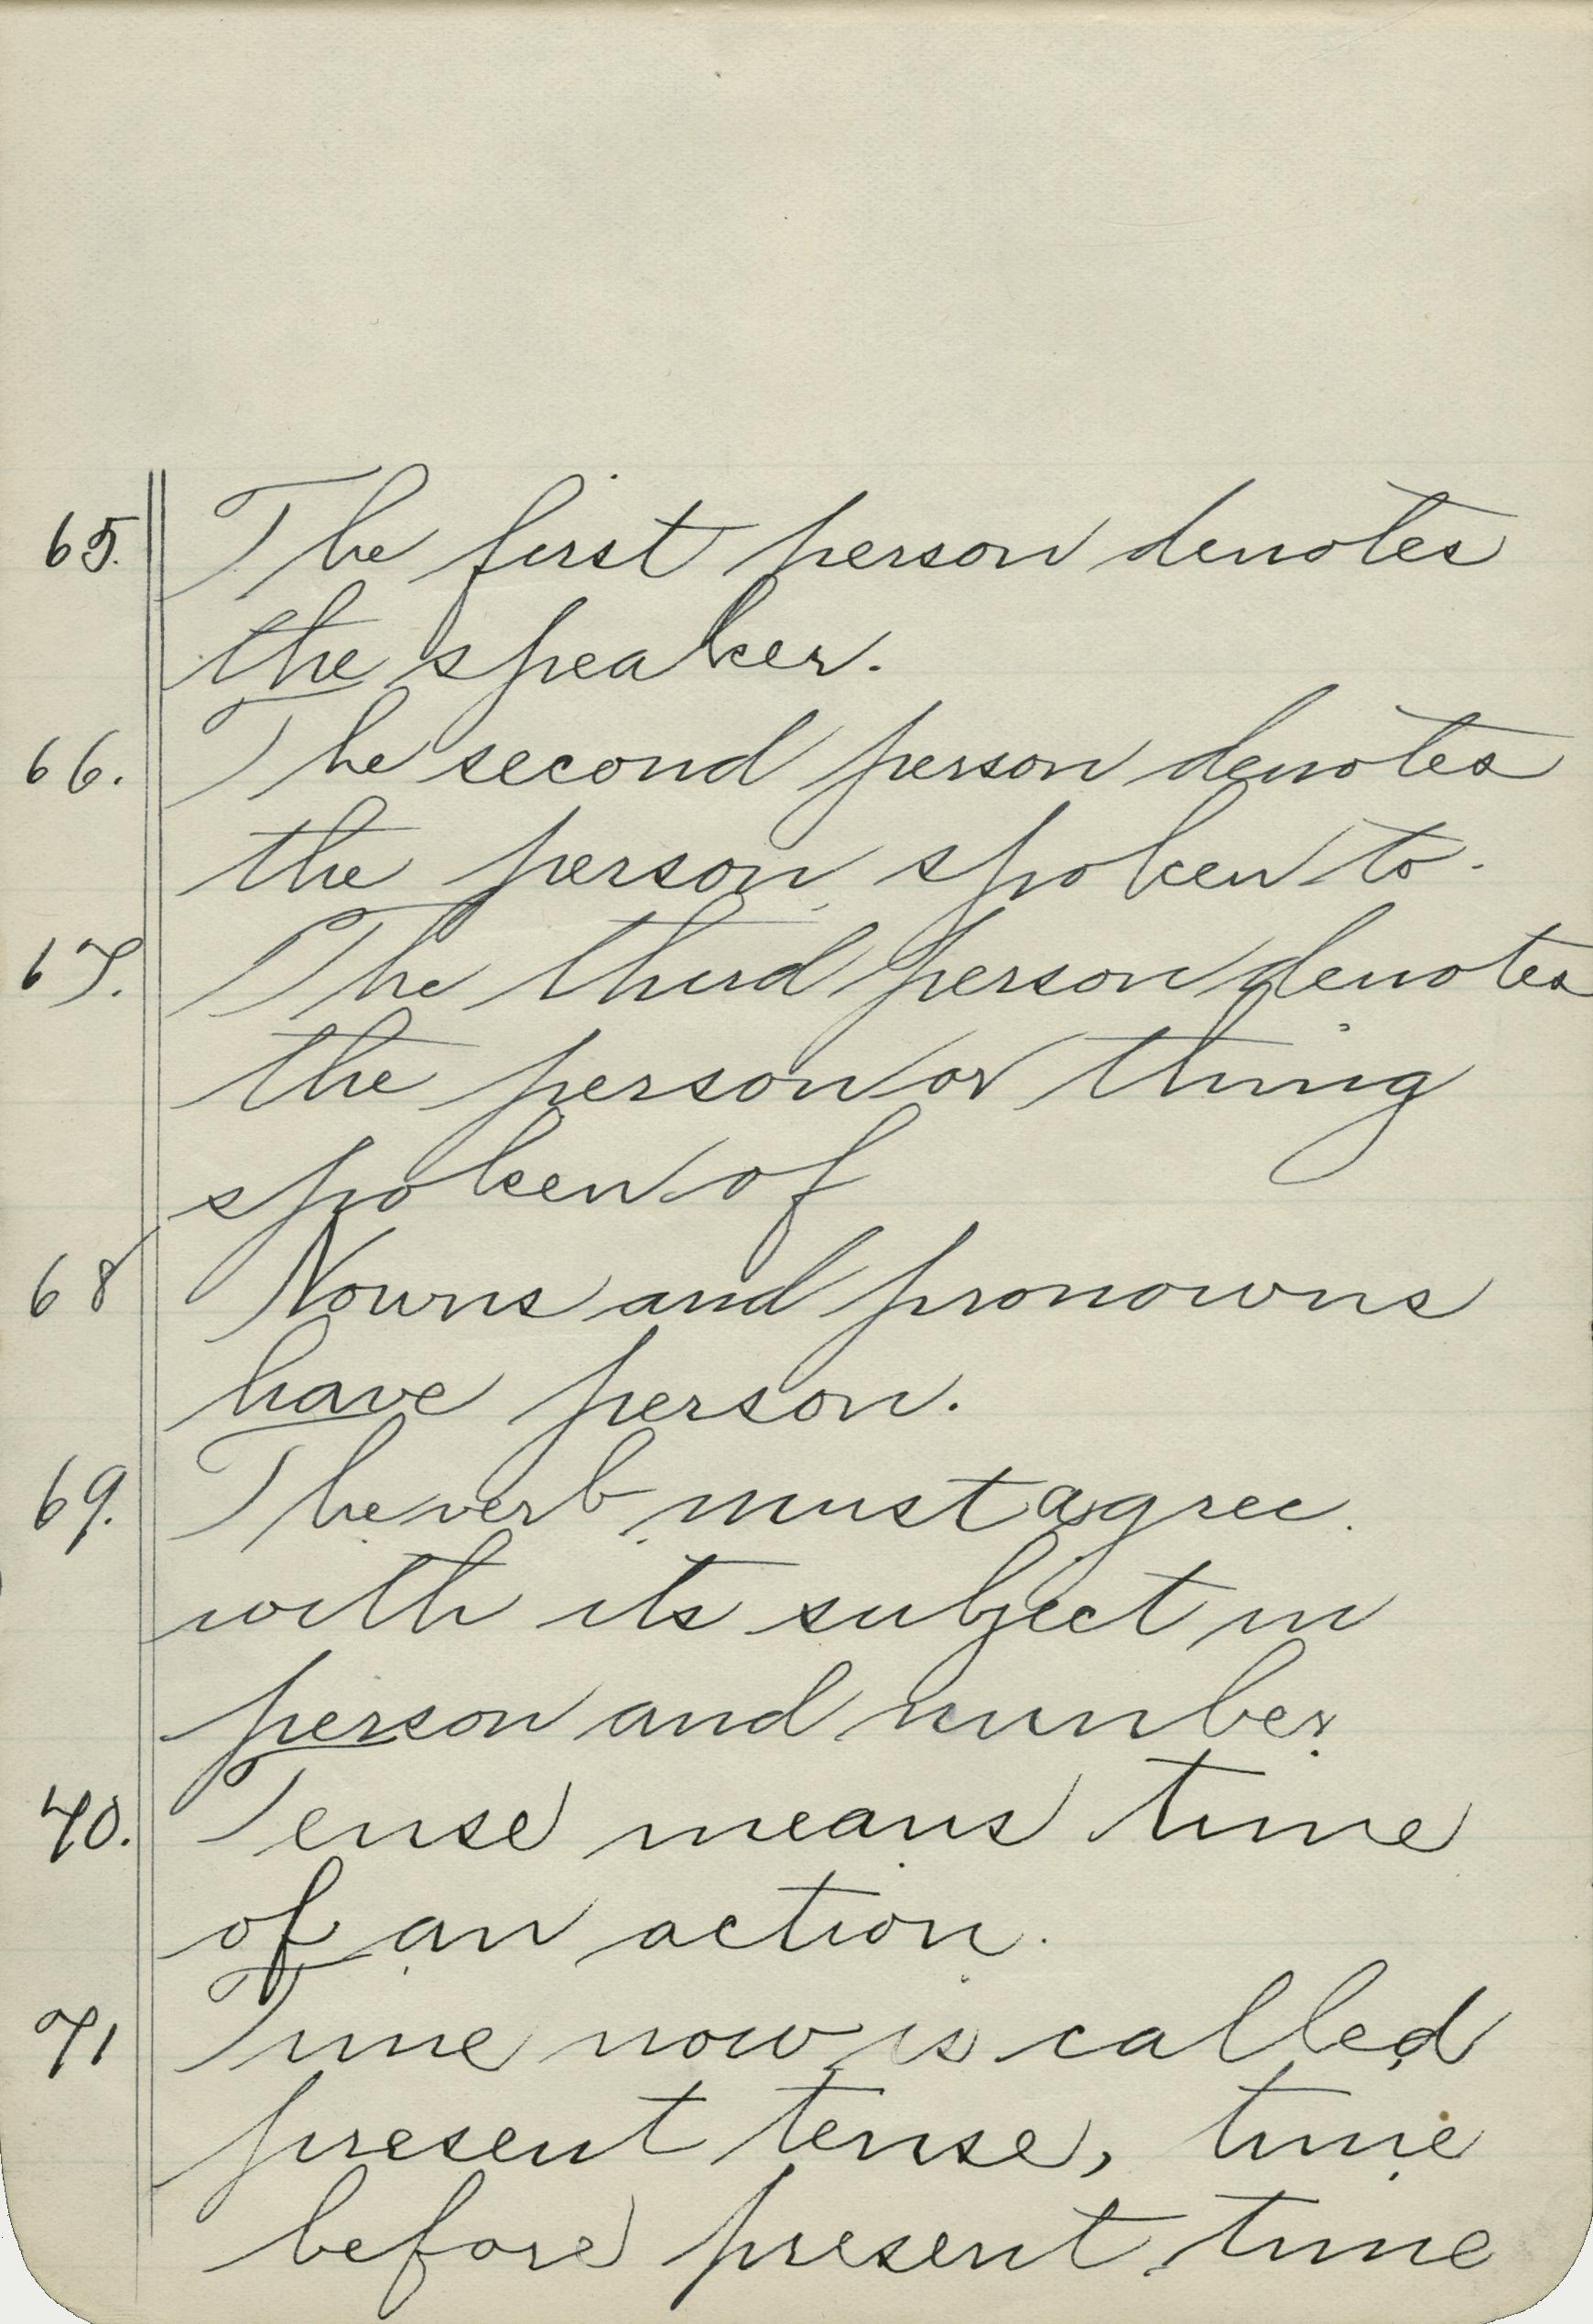 65. The first person denotes
the speaker.
66. The second person denotes
the person spoken to.
67. The third person denotes
the person or thing
spoken of
68 Nouns and pronouns
have person.
69. The verb must agree
with its subject in
person and number.
70. Tense means time
of an action.
71 Time now is called
present tense, time
before present time